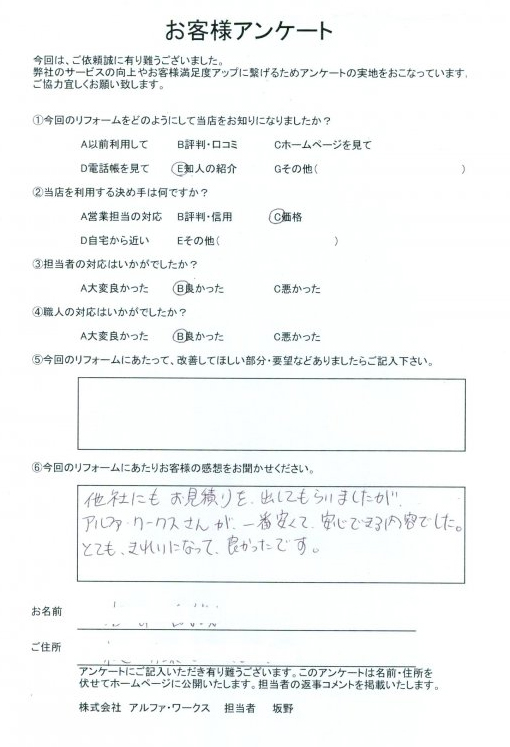 お客様アンケート
今回は、ご依頼誠に有り難うございました。
弊社のサービスの向上やお客様満足度アップに繋げるためアンケートの実地をおこなっています。
ご協力宜しくお願い致します。
①今回のリフォームをどのようにして当店をお知りになりましたか？
A以前利用して B評判・口コミ Cホームページを見て
D電話帳を見て E知人の紹介 Gその他( )
②当店を利用する決め手は何ですか？
A営業担当の対応 B評判・信用 C価格
D自宅から近い Eその他( )
③担当者の対応はいかがでしたか？
A大変良かった B良かった C悪かった
④職人の対応はいかがでしたか？
A大変良かった B良かった C悪かった
⑤今回のリフォームにあたって、改善してほしい部分・要望などありましたらご記入下さい。
⑥今回のリフォームにあたりお客様の感想をお聞かせください。
他社にもお見積りを、出してもらいましたが、
アルファ・ワークスさんが、一番安くて、安心できる内容でした。
とても、きれいになって、良かったです。
お名前
ご住所
アンケートにご記入いただき有り難うございます。このアンケートは名前・住所を
伏せてホームページに公開いたします。担当者の返事コメントを掲載いたします。
株式会社 アルファ・ワークス 担当者 坂野